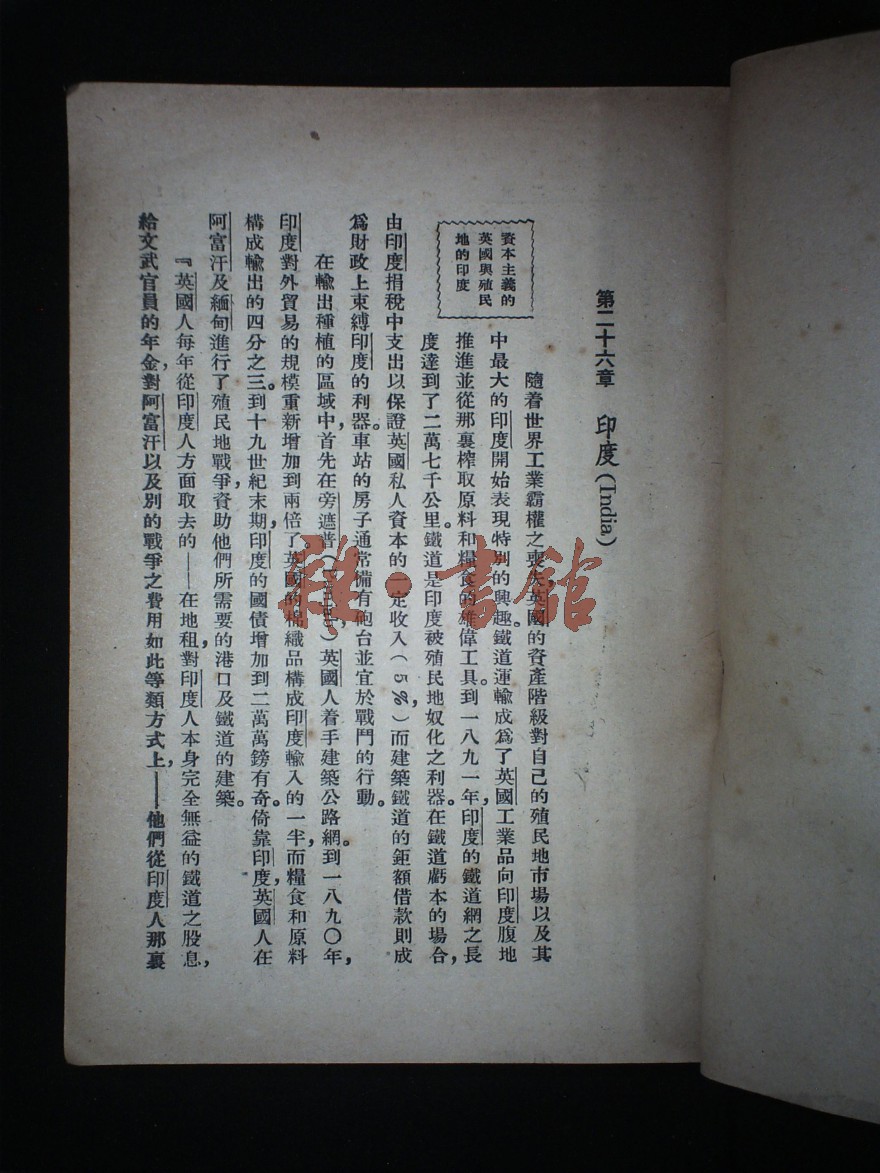 第二十六章　印度(India)
資本主義的
英國與殖民
地的印度
隨着世界工業霸權之喪失，英國的資產階級對自己的殖民地市場以及其
中最大的印度開始表現特別的興趣。鐵道運輸成爲了英國工業品向印度腹地
推進並從那裏榨取原料和糧食的雄偉工具。到一八九一年，印度的鐵道網之長
度達到了二萬七千公里。鐵道是印度被殖民地奴化之利器。在鐵道虧本的場合，
由印度捐稅中支出以保證英國私人資本的一定收入（5%），而建築鐵道的鉅額借款則成
爲財政上束縛印度的利器。車站的房子通常備有砲台並宜於戰鬥的行動。
在輸出種植的區域中，首先在旁遮普(Punjab)，英國人着手建築公路網。到一八九〇年，
印度對外貿易的規模重新增加到兩倍了。英國的棉織品構成印度輸入的一半，而糧食和原料
構成輸出的四分之三。到十九世紀末期，印度的國債增加到二萬萬鎊有奇。倚靠印度，英國人在
阿富汗及緬甸進行了殖民地戰爭，資助他們所需要的港口及鐵道的建築。
『英國人每年從印度人方面取去的——在地租，對印度人本身完全無益的鐵道之股息，
給文武官員的年金，對阿富汗以及別的戰爭之費用如此等類方式上，——他們從印度人那裏
雅·書館